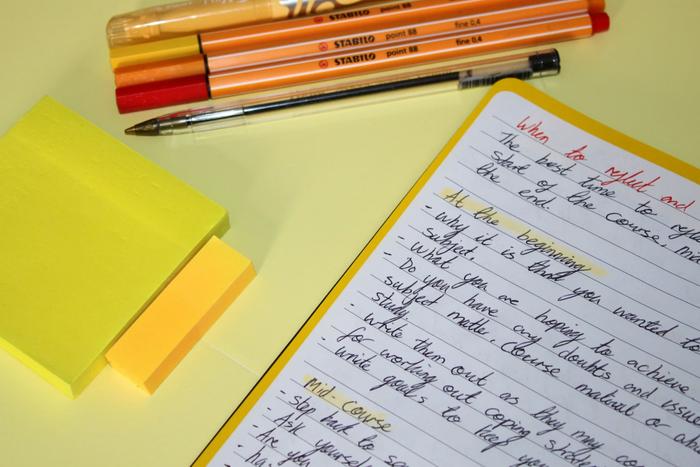 STABILO point 88 fine 0,4
STABILO point 88 fine 0,4
STABILO point 88 fine 0,4
When to reflect and
The best time to
start of the course, mid
the end.
At the beginning
- why it is that you wanted to
subject.
- What you are hoping to achieve
- Do you have any doubts and
subject matter, course material or
study
- Write them out as they may
for working out coping
- write goals to keep
Mid-Course
- step back to
- Ask yourself
- Are you